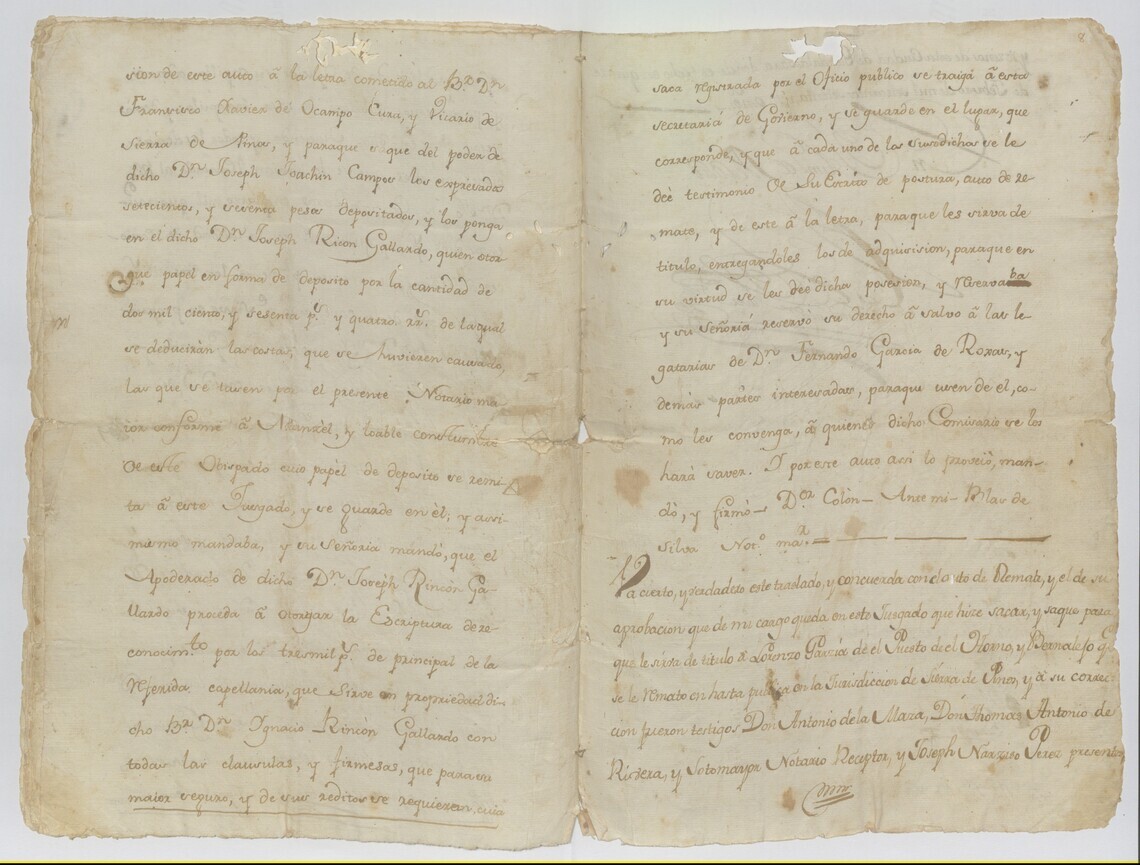 sion de este auto â la letra cometido al Br. Dn.
Francisco Xavier de Ocampo Cura, y Vicario de
Sierra de Pinos, y paraque s que del poder de
dicho Dn. Joseph Joachin Campos los expresados
setecientos, y sesenta pesos depositados, y los ponga
en el dicho Dn. Joseph Ricon Gallardo, quien otor
gue papel en forma de deposito por la cantidad de
dos mil ciento, y sesenta ps. y quatro rrs. de la qual
se deducirán las costas, que se huvieren causado,
las que se tasen por el presente Notario ma-
ior conforme â Aranzel, y loable constumbre
de este Obispado cuio papel de deposito se remi-
ta â este Jusgado, y se guarde en èl; y assi-
mismo mandaba, y su Señoria mandó, que el
Apoderado de dicho Dn. Joseph Rincón Ga-
llardo proceda â otorgar la Escriptura de re-
conocimto. por los tres mil ps. de principal de la
referida capellania, que sirve en propriedad di-
cho Br. Dn. Ignacio Rincón Gallardo con
todas las clausulas, y firmesas, que para su
maior seguro, y de sus reditos se requieran, cuia
8
saca registrada por el Oficio publico se traiga â esta
secretariá de Govierno, y se guarde en el lugar, que
corresponde, y que â cada uno de los susodichos se le
deè testimonio de su Escrito de postura, auto de re-
mate, y de este â la letra, para que les sirva de
titulo, entregandoles los de adquisision, paraque en
su virtud se les deè dicha posesion, y reservaba
y su Señoriá reservó su derecho â salvo â las le-
gatarias de Dn. Fernando Garcia de Roxas, y
demás partes interesadas, paraque usen de el, co-
mo les convenga, â quienes dicho Comisario se los
hará saver. I por este auto assi lo proveió, man-
dó, y firmó— Der. Colòn— Ante mi— Blas de
silva Noto. mar.
Va cierto, y verdadero este traslado, y concuerda con el auto de Remate, y el de su
aprobacion que de mi cargo queda en este Jusgado que hise sacar, y saque para
que le sirva de titulo â Lorenzo Garcia de el Puesto de el Horno, y Bernalejo q.
se le remato en hasta publica en la Jurisdiccion de Sierra de Pinos, y â su correc-
cion fueron testigos Don Antonio de la Maza, Don Thomas Antonio de
Rivera, y Sotomayor Notario Receptor, y Joseph Narziso Perez presentes